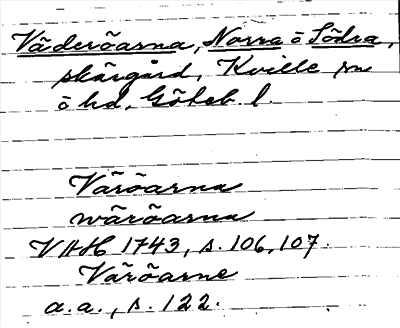 Väderöarna, Norra o Södra,
skärgård, Kville sn
o hd, Göteb. l.
Väröarna
wäröarna
VAH 1743, s. 106, 107.
Väröarne
a.a., s. 122.